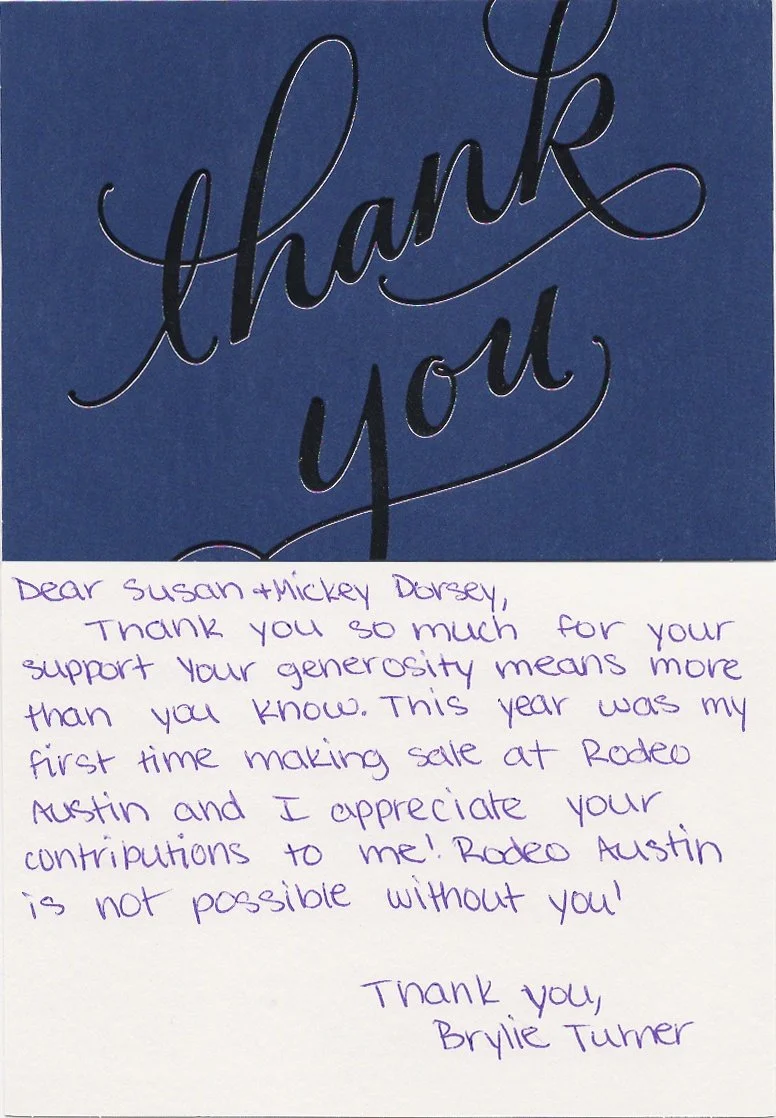 thank
you
Dear Susan + Mickey Dorsey,
Thank you so much for your
support your generosity means more
than you know. This year was my
first time making sale at Rodeo
Austin and I appreciate your
contributions to me! Rodeo Austin
is not possible without you!
Thank you,
Brylie Turner